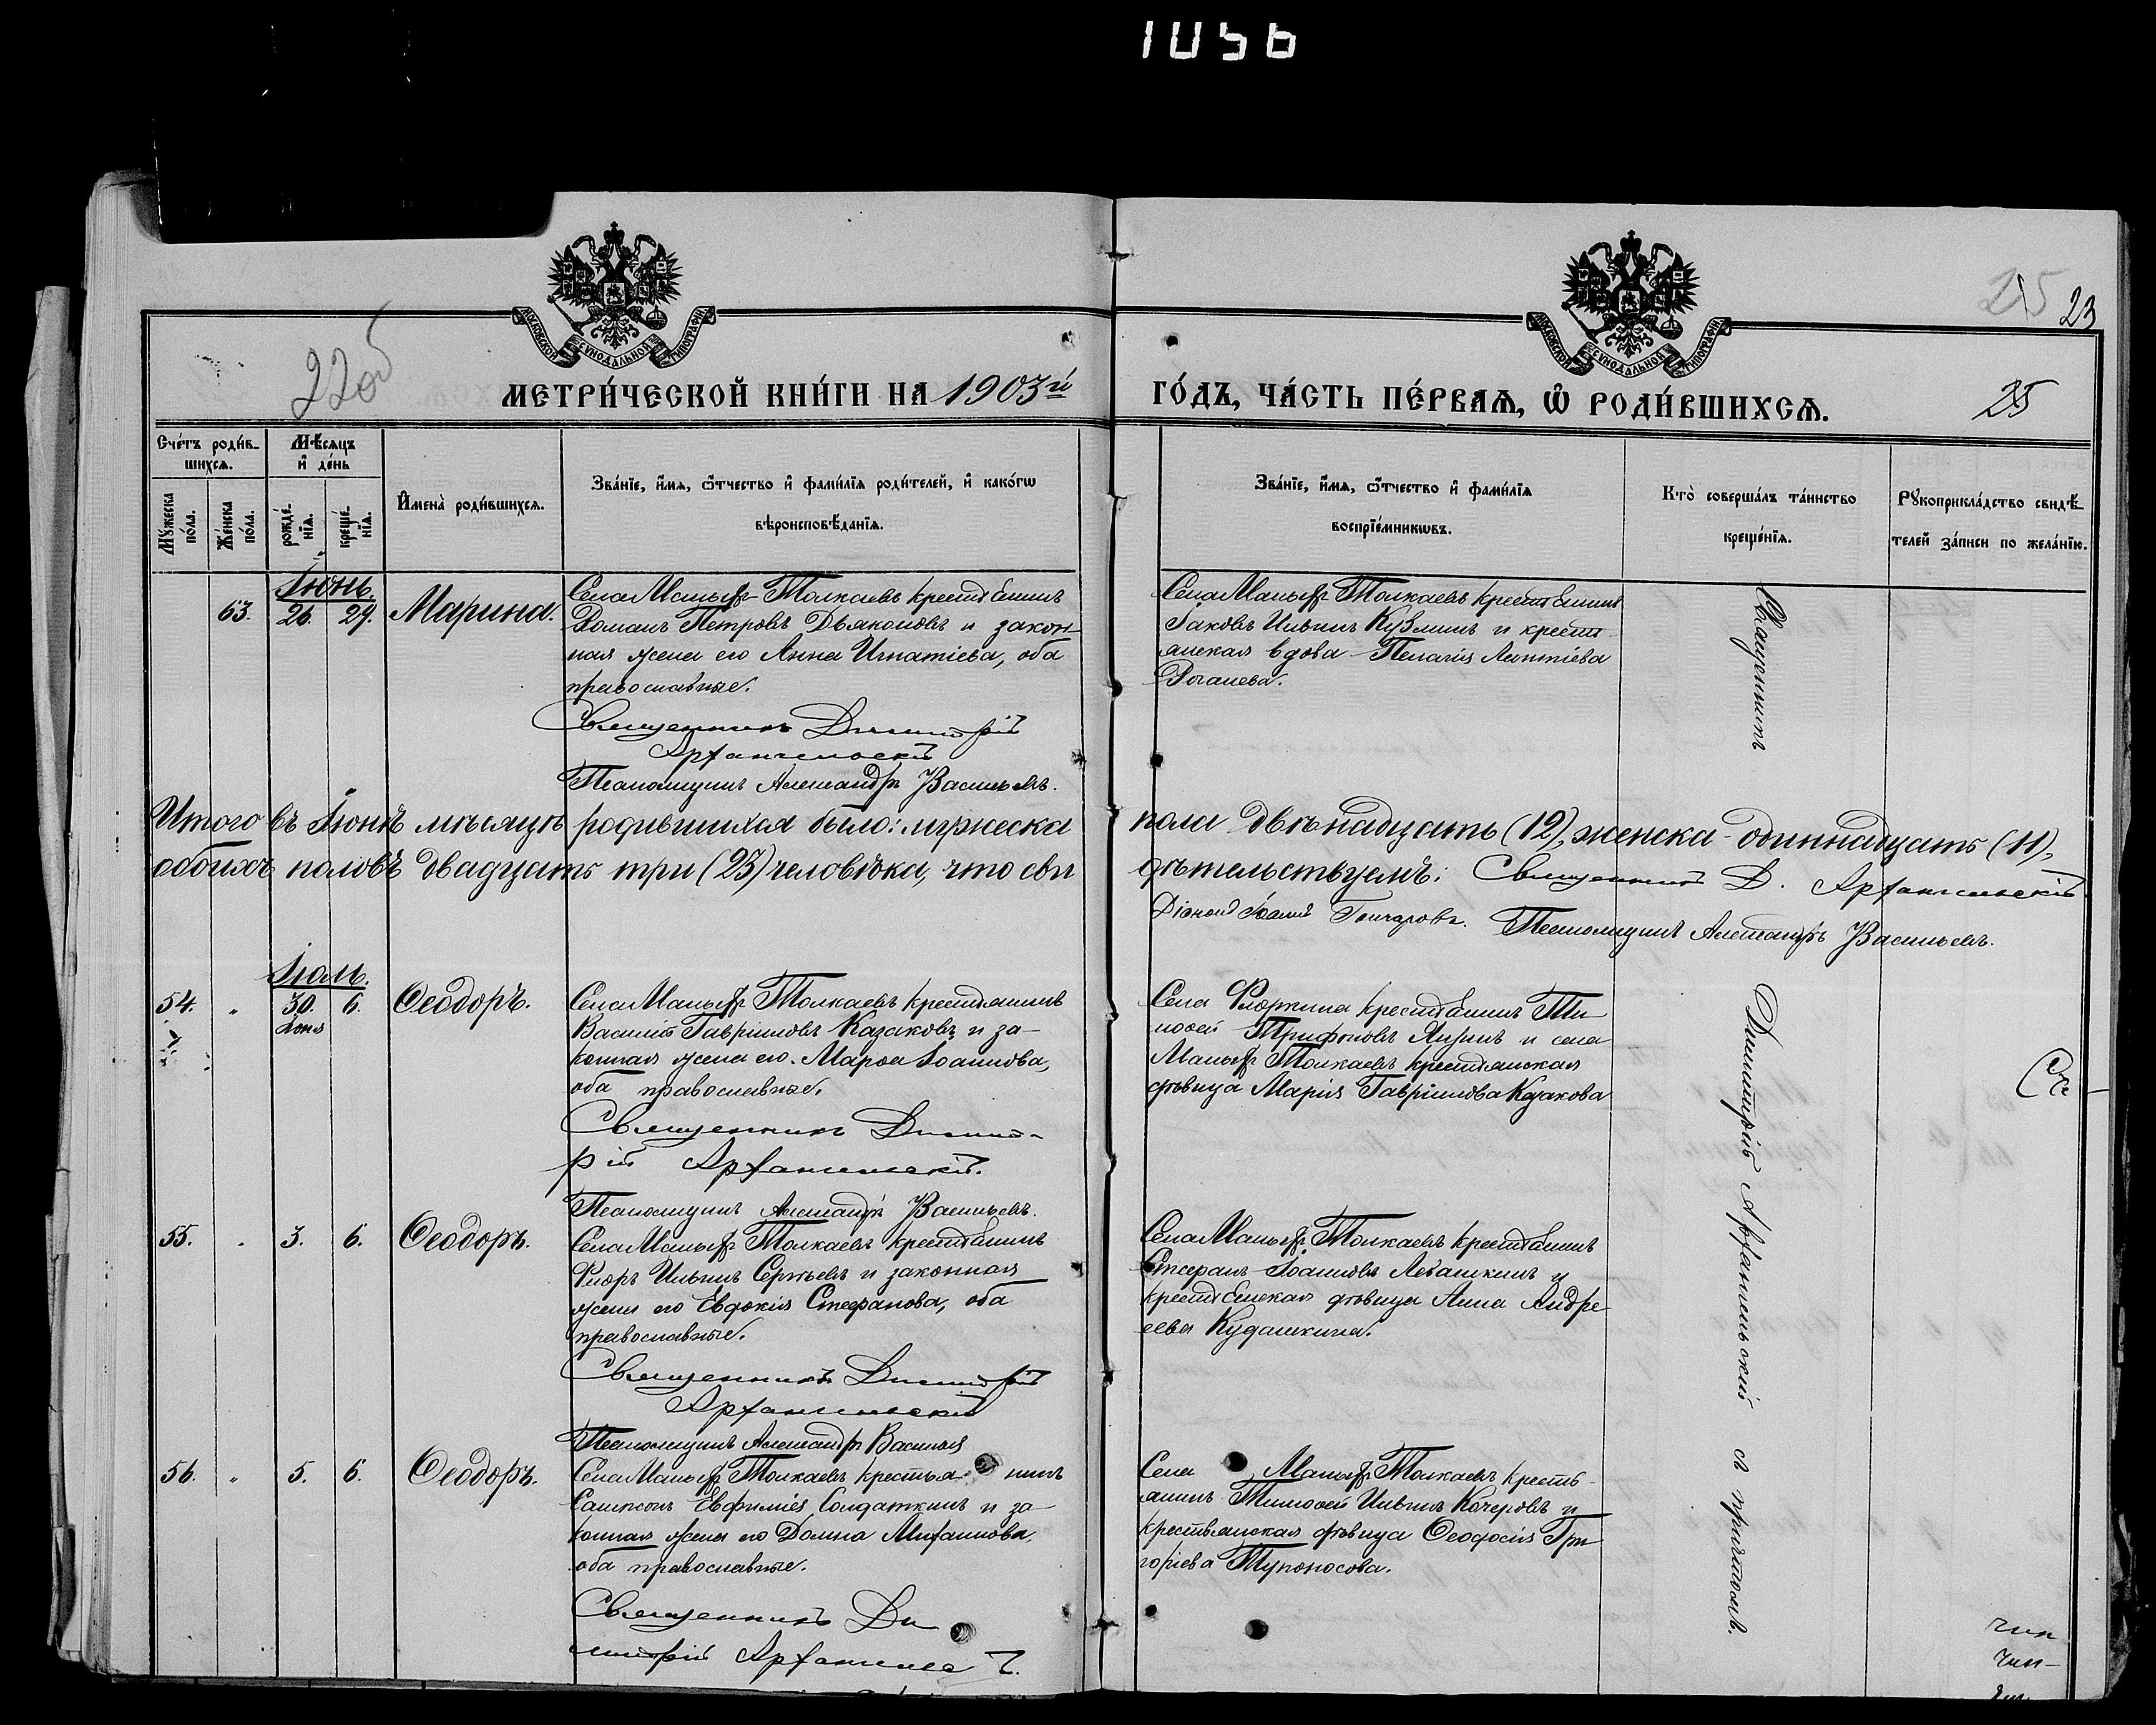 1056
МОСКОВСКОЙ СѴНОДАЛЬНОЙ ТИПОГРАФІИ
МОСКОВСКОЙ СѴНОДАЛЬНОЙ ТИПОГРАФІИ
25 23
22об
МЕТРИ́ЧЕСКОЙ КНИ́ГИ НА 1903й ГО́ДЪ, ЧА́СТЬ ПЕ́РВАѦ, Ѽ РОДИ́ВШИХСѦ.
25
Сче́тъ роди́в-
шихсѧ.
Мѣ́сѧцъ
и҆ де́нь
Мꙋ́жеска
по́ла.
Же́нска
по́ла.
рожде́-
нїѧ.
креще́-
нїѧ.
И҆мена̀ роди́вшихсѧ.
Зва́нїе, и҆́мѧ, ѻ҆́тчество и҆ фами́лїѧ роди́телей, и҆ како́гѡ
вѣроисповѣ́данїѧ.
Зва́нїе, и҆́мѧ, ѻ҆́тчество и҆ фами́лїѧ
воспрїе́мникѡвъ.
Кто̀ соверша́лъ та́инство
креще́нїѧ.
Рꙋкоприкла́дство свидѣ́-
телей за́писи по жела́нїю.
Іюнь.
63. 26. 29. Марина.
Села Малыхъ-Толкаевъ крестьянинъ
Романъ Петровъ Дьяконовъ и закон-
ная жена его Анна Игнатіева, оба
православные.
Священникъ Димитрій
Архангельскій
Псаломщикъ Александръ Васильевъ.
Села Малыхъ Толкаевъ крестьянинъ
Іаковъ Ильинъ Кузминъ и крестъ-
янская вдова Пелагія
Священникъ
Итого въ Іюнѣ мѣсяцѣ родившихся было: мужеска пола двѣнадцать (12), женска одиннадцать (11),
обоихъ половъ двадцать три (23) человѣка, что сви дѣтельствуемъ: Священникъ Д. Архангельскій
Діаконъ Іоаннъ Гончаровъ. Псаломщикъ Александръ Васильевъ.
Іюль.
54. " 30. 6. Ѳеодоръ.
Іюня
Села Малыхъ Толкаевъ крестьянинъ
Василій Гавриловъ Казаковъ и за-
конная жена его Марѳа Іоаннова,
оба православные.
Священникъ Димит-
рій Архангельскій.
Псаломщикъ Александръ Васильевъ.
Села крестьянинъ Ти-
моѳей Трифоновъ и села
Малыхъ Толкаевъ крестьянская
дѣвица Марія Гавріилова Казакова
Димитрій Архангельскій съ причтомъ.
55. " 3. 6. Ѳеодоръ.
Села Малыхъ Толкаевъ крестьянинъ
Флоръ Ильинъ Сергѣевъ и законная
жена его Евдокія Стефанова, оба
православные.
Священникъ Димитрій
Архангельскій
Псаломщикъ Александръ Васильевъ
Села Малыхъ Толкаевъ крестьянинъ
Стефанъ Іоанновъ Левашкинъ и
крестьянская дѣвица Анна Андре-
ева Кудашкина.
56. " 5. 6. Ѳеодоръ.
Села Малыхъ Толкаевъ крестья нинъ
Сампсонъ Евфиміевъ Солдаткинъ и за-
конная жена его Домна Михаилова,
оба православные.
Священникъ Ди-
митрій Архангельскій.
Села Малыхъ Толкаевъ кресть-
янинъ Тимоѳей Ильинъ Кочеровъ и
крестьянская дѣвица Ѳеодосія Гри-
горіева Тупоносова.